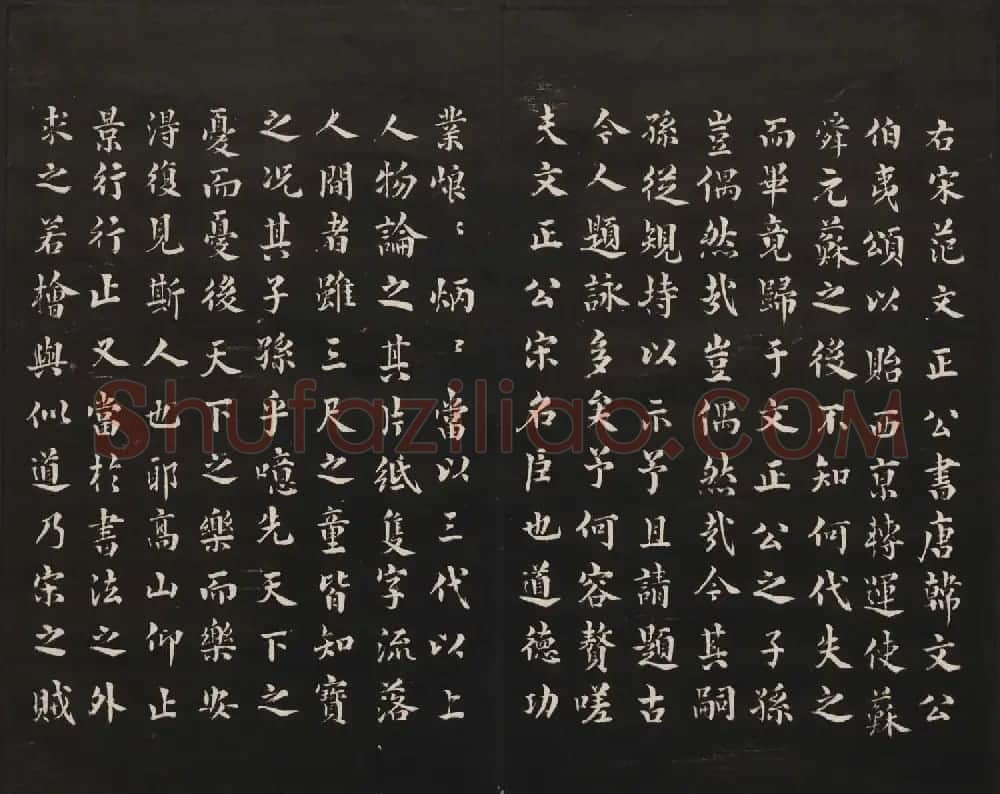 右宋范文正公書唐韓文公
伯夷頌以貽西京轉運使蘇
舜元蘇之後不知何代失之
而畢竟歸于文正公之子孫
豈偶然哉豈偶然哉今其嗣
孫從規持以示予且請題古
今人題詠多矣予何容贅嗟
夫文正公宋名臣也道德功
業烺〻炳〻當以三代以上
人物論之其片紙隻字流落
人間者雖三尺之童皆知寶
之况其子孫乎噫先天下之
憂而憂後天下之樂而樂安
得復見斯人也耶高山仰止
景行行止又當於書法之外
求之若檜與似道乃宋之賊
Shufaziliao.COM